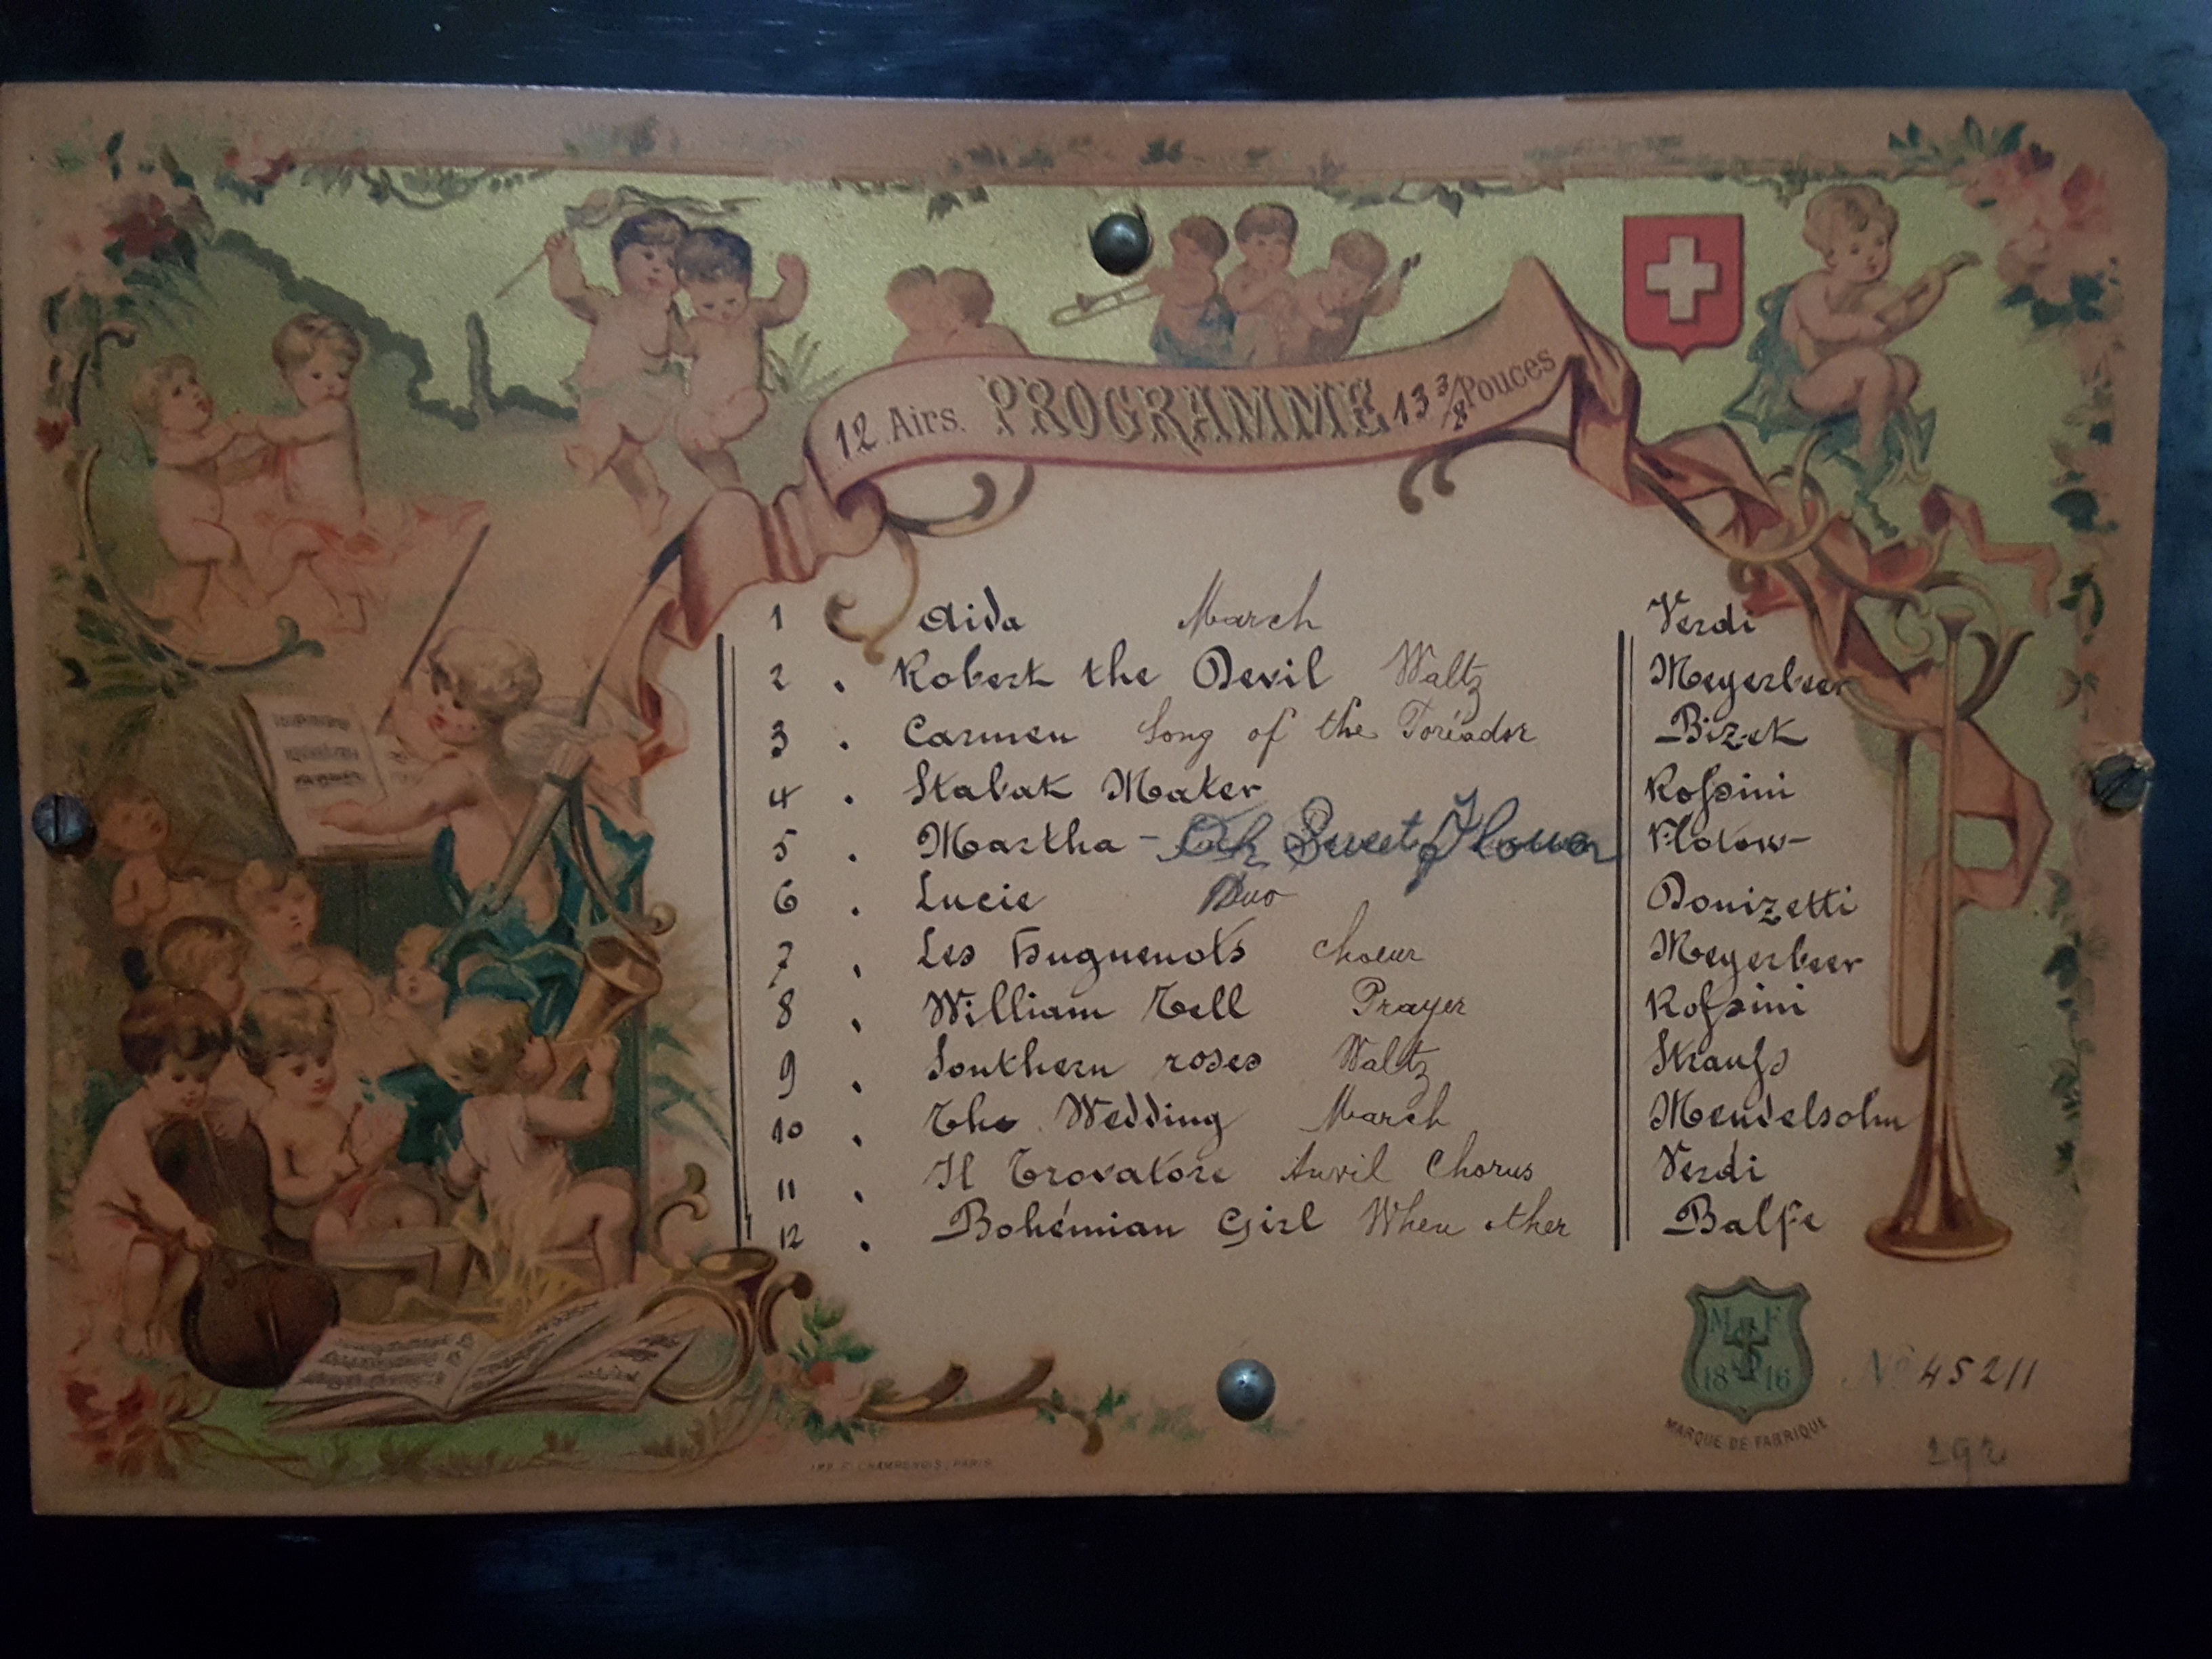 12 Airs. PROGRAMME 13 3/8 Pouces
1 Aida March Verdi
2 . Robert the Devil Waltz Meyerbeer
3 . Carmen Song of the Toréador Bizet
4 . Stabat Mater Rossini
5 . Martha - Oh Sweet Flower Flotow-
6 . Lucie Duo Donizetti
7 . Les Huguenots Choeur Meyerbeer
8 . William Tell Prayer Rossini
9 . Southern roses Waltz Strauss
10 . The Wedding March Mendelsohn
11 . Il Trovatore Anvil Chorus Verdi
12 . Bohémian Girl When other Balfe
M F
18 16
MARQUE DE FABRIQUE
No 45211
292
IMP. F. CHAMPENOIS, PARIS